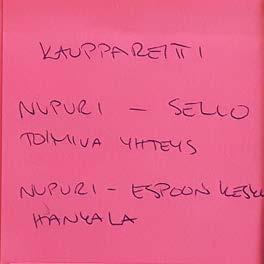 KAUPPAREITTI
NUPURI – SELLO
TOIMIVA YHTEYS
NUPURI – ESPOON KESKU
HANKALA